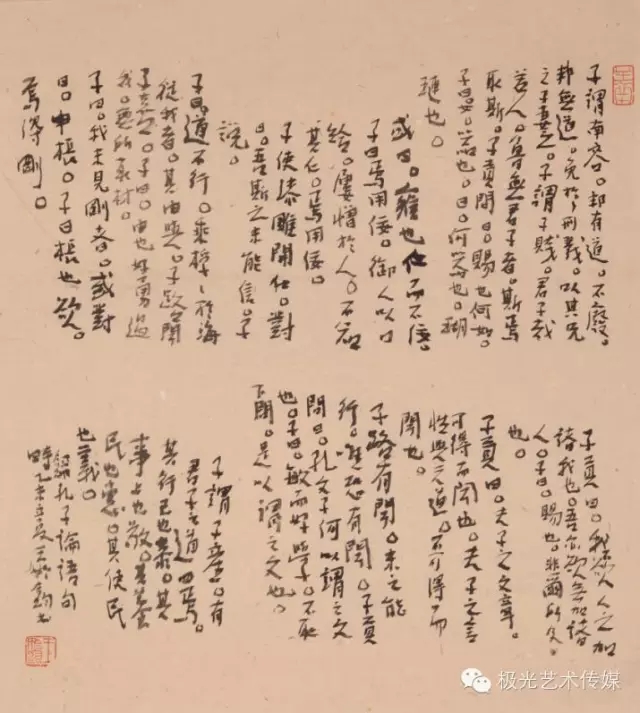 子謂南容。邦有道。不廢。
邦無道。免於刑戮。以其兄
之子妻之。子謂子賤。君子哉
若人。魯無君子者。斯焉
取斯。子貢問曰。賜也何如。
子曰。器也。曰。何器也。瑚
璉也。
或曰。雍也仁而不佞。
子曰。焉用佞。御人以口
給。屢憎於人。不知
其仁。焉用佞。
子使漆雕開仕。對
曰。吾斯之未能信。子
說。
子曰。道不行。乘桴於海
從我者。其由與。子路聞
之喜。子曰。由也好勇過
我。無所取材。
子曰。我未見剛者。或對
曰。申棖。子曰。棖也欲。
焉得剛。
子貢曰。我不欲人之加
諸我也。吾亦欲無加諸
人。子曰。賜也。非爾所及。
也。
子貢曰。夫子之文章。
可得而聞也。夫子之言
性與天道。不可得而
聞也。
子路有聞。未之能
行。唯恐有聞。子貢
問曰。孔文子何以謂之文
也。子曰。敏而好學。不恥
下問。是以謂之文也。
子謂子產。有
君子之道四焉。
其行己也恭。其
事上也敬。其養
民也惠。其使民
也義。
錄孔子論語句
時乙未立夏王書
极光艺术传媒